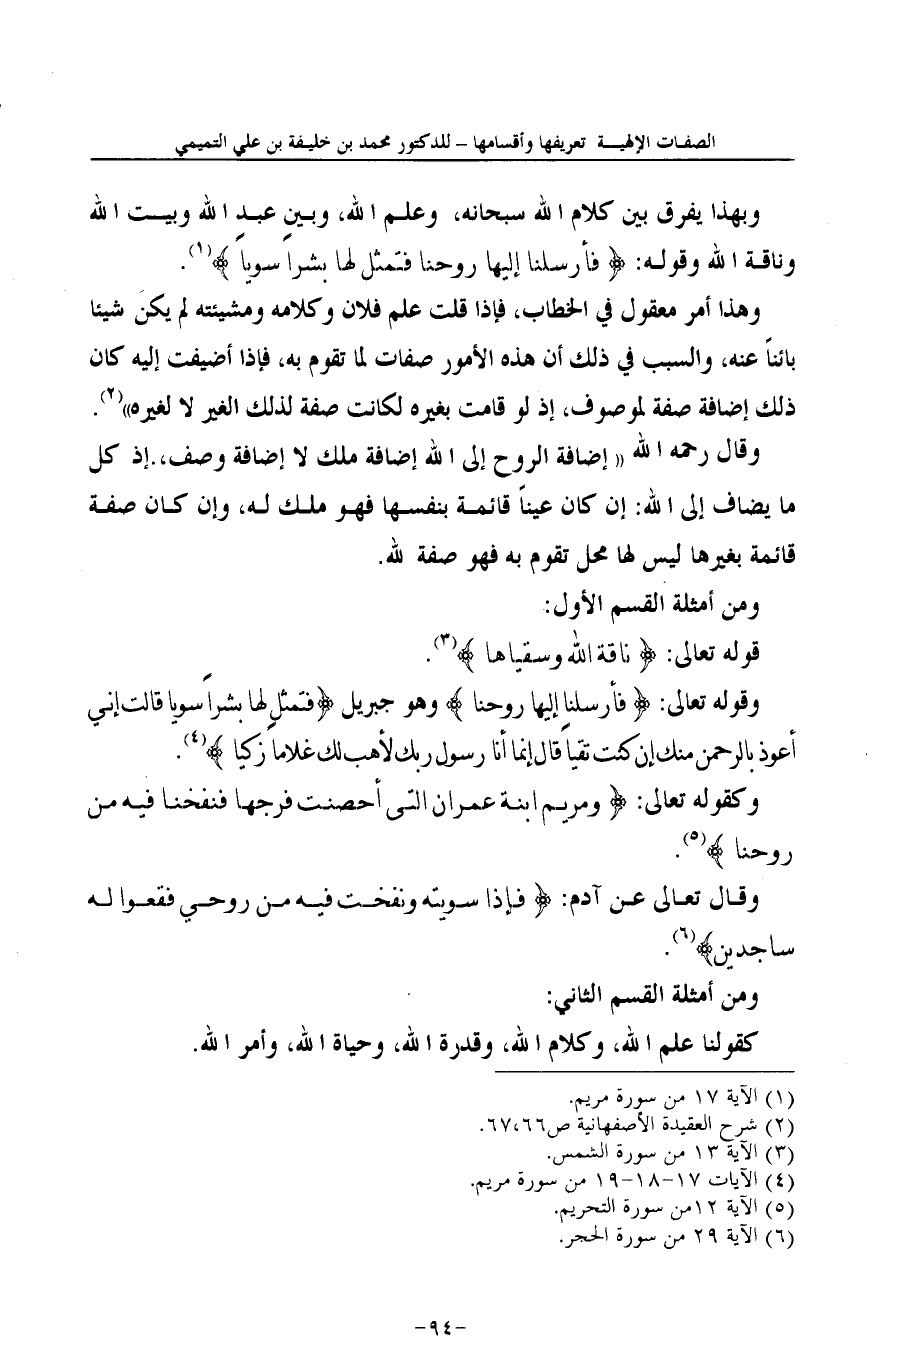 الصفات الإلهية تعريفها وأقسامها – للدكتور محمد بن خليفة بن علي التميمي
وبهذا يفرق بين كلام الله سبحانه، وعلم الله، وبين عبد الله وبيت الله
وناقة الله وقوله: ﴿ فأرسلنا إليها روحنا فتمثل لها بشراً سوياً ﴾(١).
وهذا أمر معقول في الخطاب، فإذا قلت علم فلان وكلامه ومشيئته لم يكن شيئا
بائناً عنه، والسبب في ذلك أن هذه الأمور صفات لما تقوم به، فإذا أضيفت إليه كان
ذلك إضافة صفة لموصوف، إذ لو قامت بغيره لكانت صفة لذلك الغير لا لغيره»(٢).
وقال رحمه الله « إضافة الروح إلى الله إضافة ملك لا إضافة وصف،.إذ كل
ما يضاف إلى الله: إن كان عيناً قائمة بنفسها فهو ملك له، وإن كان صفة
قائمة بغيرها ليس لها محل تقوم به فهو صفة لله.
ومن أمثلة القسم الأول:
قوله تعالى: ﴿ ناقة الله وسقياها ﴾(٣).
وقوله تعالى: ﴿ فأرسلنا إليها روحنا ﴾ وهو جبريل ﴿فتمثل لها بشراً سويا قالت إني
أعوذ بالرحمن منك إن كنت تقياً قال إنما أنا رسول ربك لأهب لك غلاماً زكيا ﴾(٤).
وكقوله تعالى: ﴿ ومريم ابنة عمران التي أحصنت فرجها فنفخنا فيه من
روحنا ﴾(٥).
وقال تعالى عن آدم: ﴿ فإذا سويته ونفخت فيه من روحي فقعوا له
ساجدين﴾(٦).
ومن أمثلة القسم الثاني:
كقولنا علم الله، وكلام الله، وقدرة الله، وحياة الله، وأمر الله.
(١) الآية ١٧ من سورة مريم.
(٢) شرح العقيدة الأصفهانية ص٦٧،٦٦.
(٣) الآية ١٣ من سورة الشمس.
(٤) الآيات ١٧–١٨–١٩ من سورة مريم.
(٥) الآية ١٢من سورة التحريم.
(٦) الآية ٢٩ من سورة الحجر.
-٩٤-